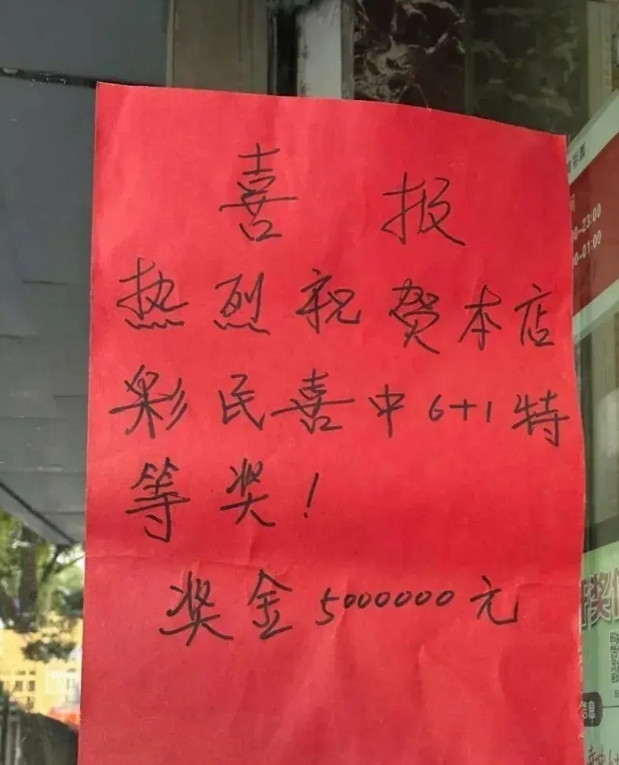 喜报
热烈祝贺本店
彩民喜中6+1特
等奖!
奖金5000000元
-23:00
-01:00
信息